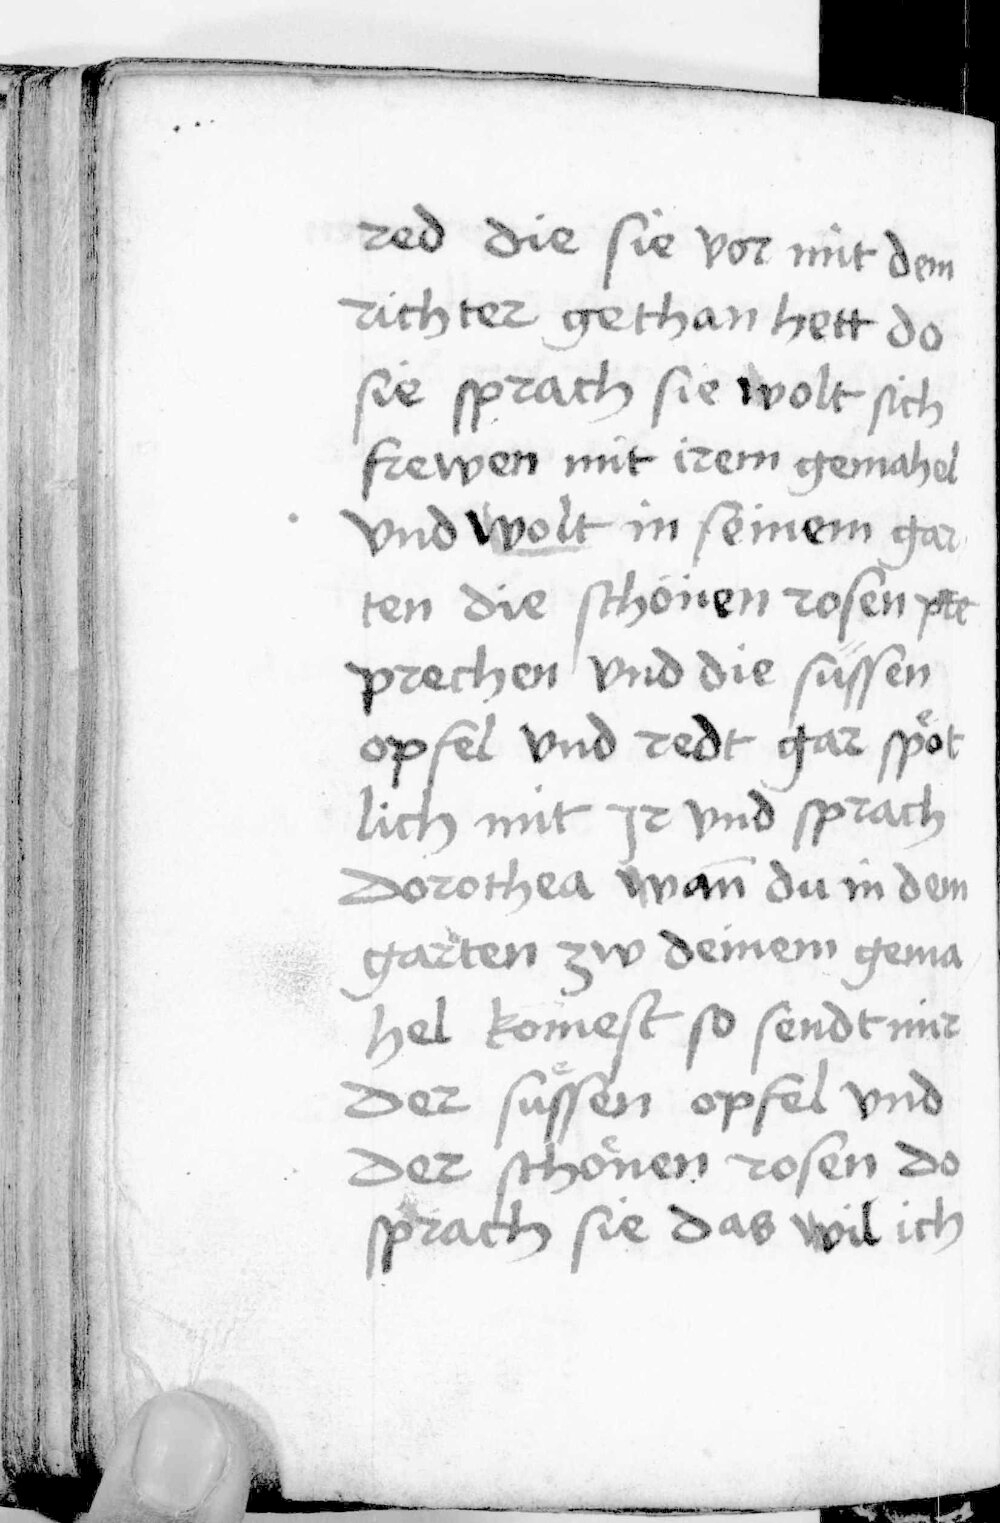 red die sie vor mit dem
richter gethan hett do
sie sprach sie wolt sich
frewen mit irem gemahel
vnd wolt in seinem gar
ten die schönen rosen
prechen vnd die süssen
opfel vnd redt gar spöt
lich mit Jr vnd sprach
Dorothea wan̄ du in dem
garten zw deinem gema
hel komest so sendt mir
der sussen opfel vnd
der schönen rosen do
sprach sie das wil ich